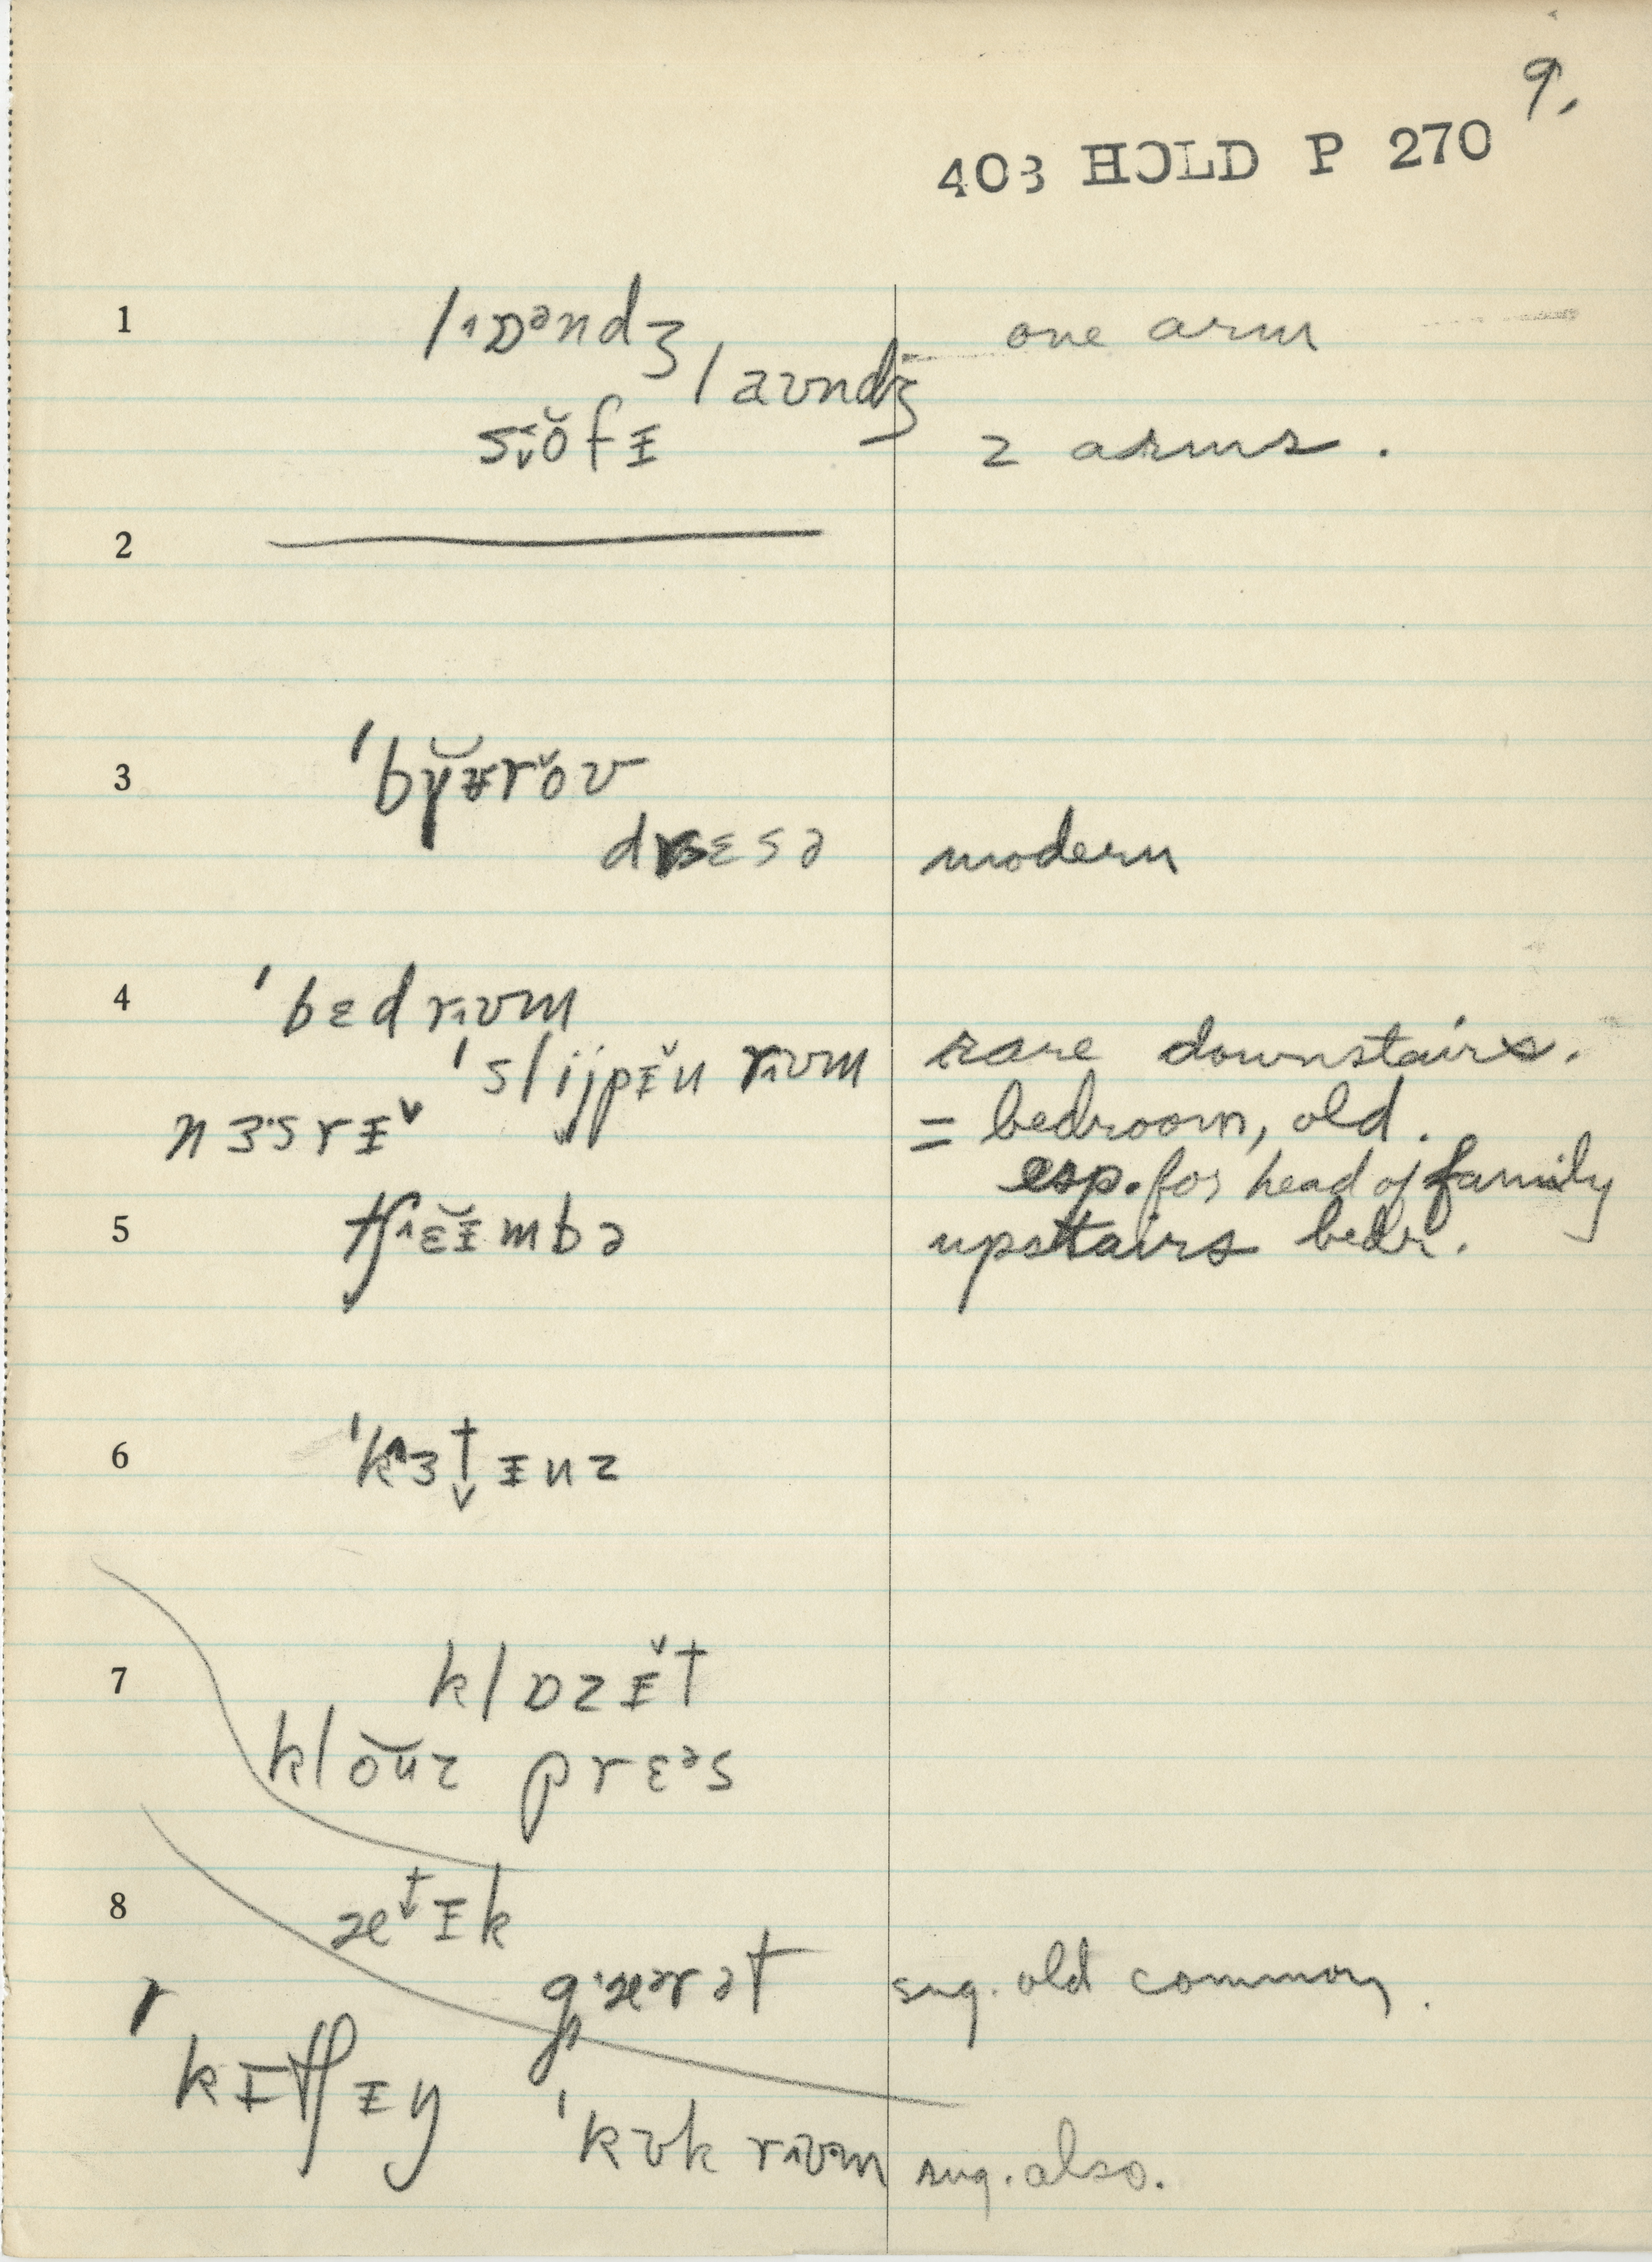 9.
403 HOLD P 270
1 lɒᵊndʒ one arm
laʊndʒ
soˇfɪ 2 arms.
2
3 ˈbyɜroʊ
drɛsə modern
4 ˈbɛd rʊm
ˈslijpɪˇn rʊm rare downstairs.
nɜ·srɪˇ = bedroom, old.
esp. for head of family
5 tʃɛɪmbə upstairs bedr.
6 ˈkɜtɪnz
7 klɒzɪˇt
kloʊz prɛᵊs
8 ætɪk
gærət sug. old common.
kɪtʃɪn
ˈkʊk rʊm sug. also.